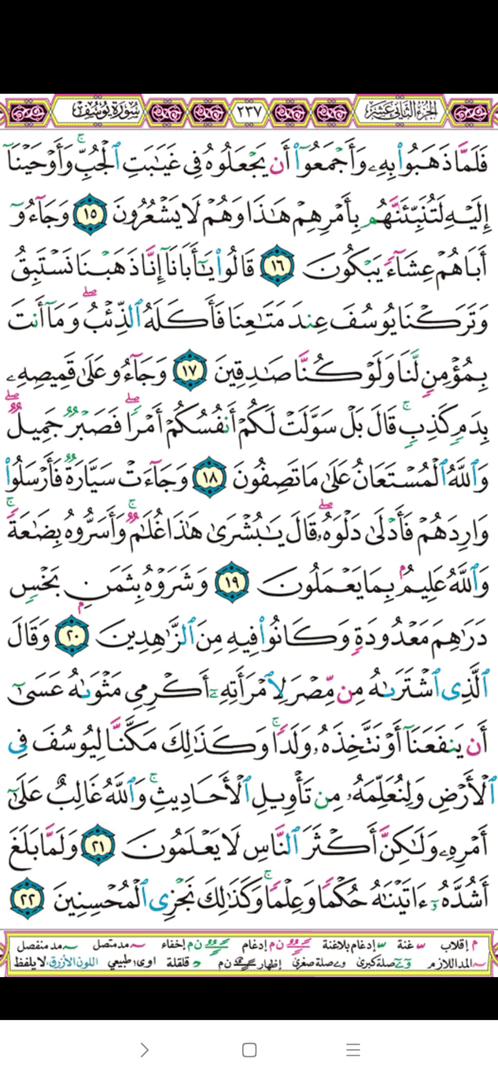 الجزء الثاني عشر ٢٣٧ سورة يوسف
فَلَمَّا ذَهَبُوا۟ بِهِۦ وَأَجْمَعُوٓا۟ أَن يَجْعَلُوهُ فِى غَيَـٰبَتِ ٱلْجُبِّ ۚ وَأَوْحَيْنَآ
إِلَيْهِ لَتُنَبِّئَنَّهُم بِأَمْرِهِمْ هَـٰذَا وَهُمْ لَا يَشْعُرُونَ ١٥ وَجَآءُوٓ
أَبَاهُمْ عِشَآءً يَبْكُونَ ١٦ قَالُوا۟ يَـٰٓأَبَانَآ إِنَّا ذَهَبْنَا نَسْتَبِقُ
وَتَرَكْنَا يُوسُفَ عِندَ مَتَـٰعِنَا فَأَكَلَهُ ٱلذِّئْبُ ۖ وَمَآ أَنتَ
بِمُؤْمِنٍ لَّنَا وَلَوْ كُنَّا صَـٰدِقِينَ ١٧ وَجَآءُو عَلَىٰ قَمِيصِهِۦ
بِدَمٍ كَذِبٍ ۚ قَالَ بَلْ سَوَّلَتْ لَكُمْ أَنفُسُكُمْ أَمْرًا ۖ فَصَبْرٌ جَمِيلٌ ۖ
وَٱللَّهُ ٱلْمُسْتَعَانُ عَلَىٰ مَا تَصِفُونَ ١٨ وَجَآءَتْ سَيَّارَةٌ فَأَرْسَلُوا۟
وَارِدَهُمْ فَأَدْلَىٰ دَلْوَهُۥ ۖ قَالَ يَـٰبُشْرَىٰ هَـٰذَا غُلَـٰمٌ ۚ وَأَسَرُّوهُ بِضَـٰعَةً ۚ
وَٱللَّهُ عَلِيمٌۢ بِمَا يَعْمَلُونَ ١٩ وَشَرَوْهُ بِثَمَنٍۭ بَخْسٍ
دَرَٰهِمَ مَعْدُودَةٍ وَكَانُوا۟ فِيهِ مِنَ ٱلزَّٰهِدِينَ ٢٠ وَقَالَ
ٱلَّذِى ٱشْتَرَىٰهُ مِن مِّصْرَ لِٱمْرَأَتِهِۦٓ أَكْرِمِى مَثْوَىٰهُ عَسَىٰٓ
أَن يَنفَعَنَآ أَوْ نَتَّخِذَهُۥ وَلَدًا ۚ وَكَذَٰلِكَ مَكَّنَّا لِيُوسُفَ فِى
ٱلْأَرْضِ وَلِنُعَلِّمَهُۥ مِن تَأْوِيلِ ٱلْأَحَادِيثِ ۚ وَٱللَّهُ غَالِبٌ عَلَىٰٓ
أَمْرِهِۦ وَلَـٰكِنَّ أَكْثَرَ ٱلنَّاسِ لَا يَعْلَمُونَ ٢١ وَلَمَّا بَلَغَ
أَشُدَّهُۥٓ ءَاتَيْنَـٰهُ حُكْمًا وَعِلْمًا ۚ وَكَذَٰلِكَ نَجْزِى ٱلْمُحْسِنِينَ ٢٢
م إقلاب غنة إدغام بلاغنة ن م إدغام ن م إخفاء مد متصل مد منفصل
المد اللازم صلة كبرى صلة صغرى إظهار ن م قلقلة اوى؛ طبيعي اللون الأزرق، لا يلفظ